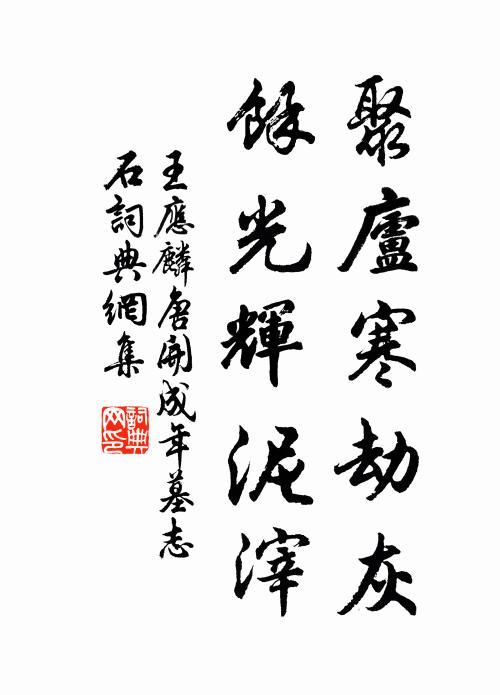 聚廬寒劫灰
餘光輝泥滓
王應麟唐開成年墓志
石詞典網集
詞典网印